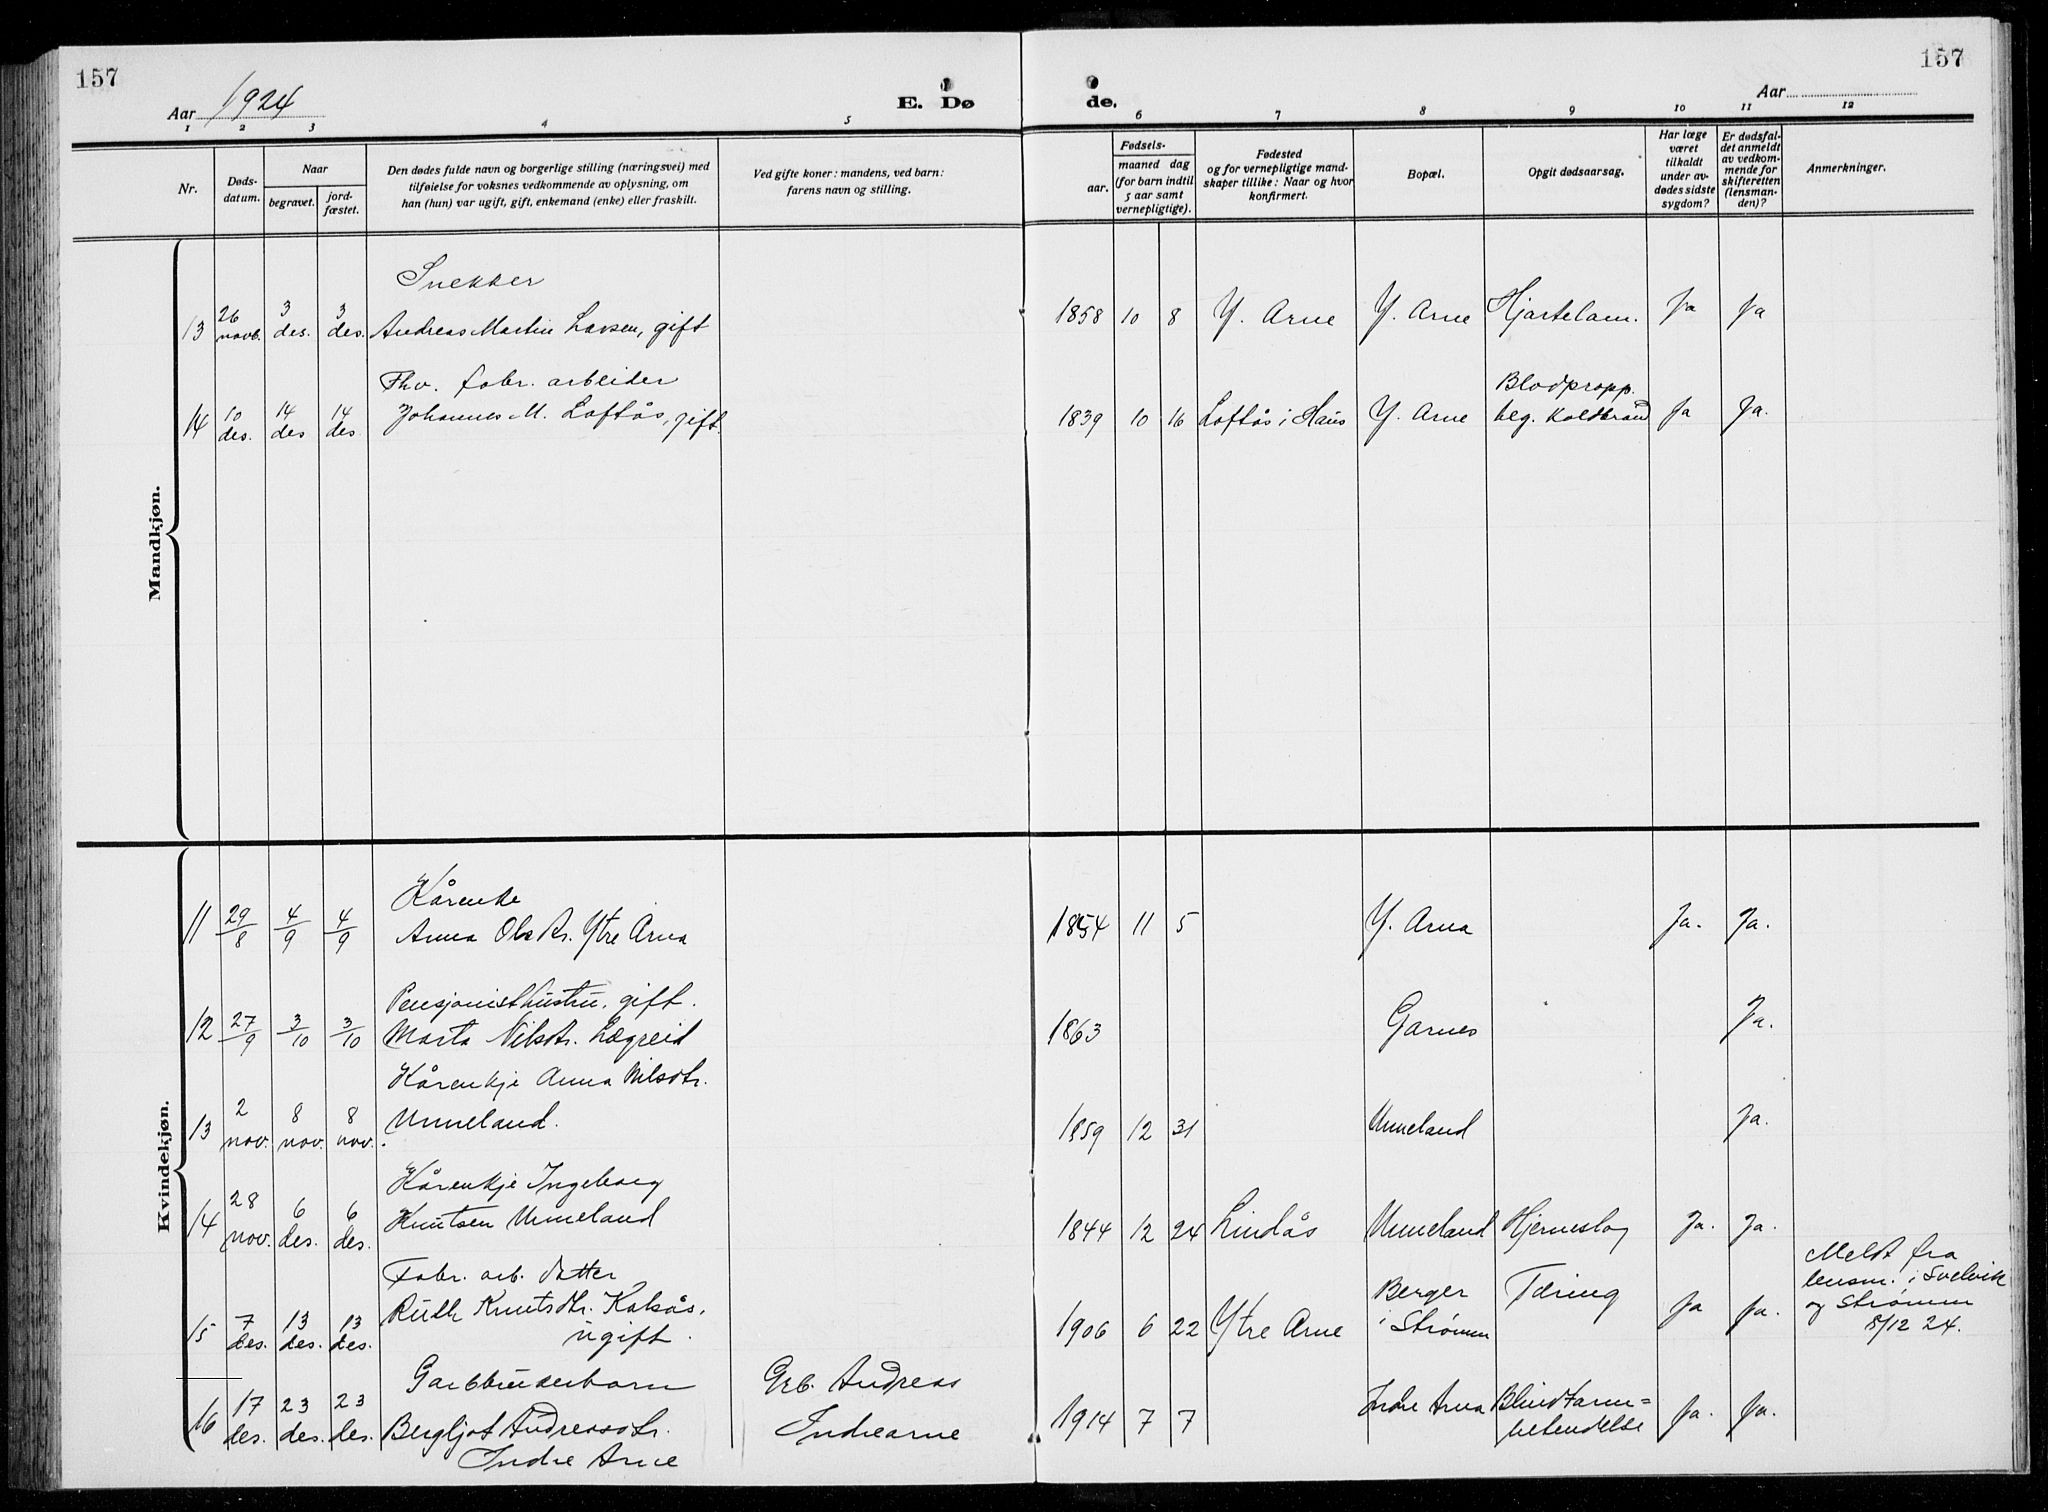 157
157
Aar 1924
E. Dø
de.
Aar
1 2 3 4 5 6 7 8 9 10 11 12
Nr.
Døds-
datum.
Naar
begravet.
jord-
fæstet.
Den dødes fulde navn og borgerlige stilling (næringsvei) med
tilføielse for voksnes vedkommende av oplysning, om
han (hun) var ugift, gift, enkemand (enke) eller fraskilt.
Ved gifte koner: mandens, ved barn:
farens navn og stilling.
Fødsels-
aar.
maaned dag
(for barn indtil
5 aar samt
vernepligtige).
Fødested
og for vernepligtige mand-
skaper tillike: Naar og hvor
konfirmert.
Bopæl.
Opgit dødsaarsag.
Har læge
været
tilkaldt
under av-
dødes sidste
sygdom?
Er dødsfal-
det anmeldt
av vedkom-
mende for
skifteretten
(lensman-
den)?
Anmerkninger.
Mandkjøn.
Snekker
13 26 novb. 3 des. 3 des. Andreas Martin Larsen, gift 1858 10 8 Y. Arne Y. Arne Hjartelam. Ja Ja
Fhv. fabr. arbeider
Blodpropp.
14 10 des. 14 des 14 des. Johannes M. Loftås, gift. 1839 10 16 Loftås i Haus Y. Arne beg. Koldbrand Ja Ja.
Kvindekjøn.
Kårenke
11 29/8 4/9 4/9 Anna Olsdtr. Ytre Arna 1854 11 5 Y. Arna Ja. Ja.
Pensjonisthustru, gift.
12 27/9 3/10 3/10 Marta Nilsdtr. Lægreid 1863 Garnes Ja.
Kårenkje Anna Nilsdtr.
13 2 nov. 8 nov. 8 nov. Unneland. 1859 12 31 Unneland Ja.
Kårenkje Ingeborg
14 28 nov. 6 des. 6 des. Knutsen Unneland 1844 12 24 Lindås Unneland Hjerneslag Ja. Ja.
Fabr. arb. datter
15 7 des. 13 des. 13 des. Ruth Knutsdtr. Kalsås, 1906 6 22 Ytre Arne Berger i Strømm Tæring Ja Ja.
ugift.
Meldt fra
lensm. i Svelvik
og Strømm
8/12 24.
Garbbrukerbarn
Grb. Andreas
16 17 des. 23 des. 23 des. Bergljot Andreasdtr. Indrearne 1914 7 7 Indre Arna Blindtarm= Ja. Ja.
Indre Arne
betendelse